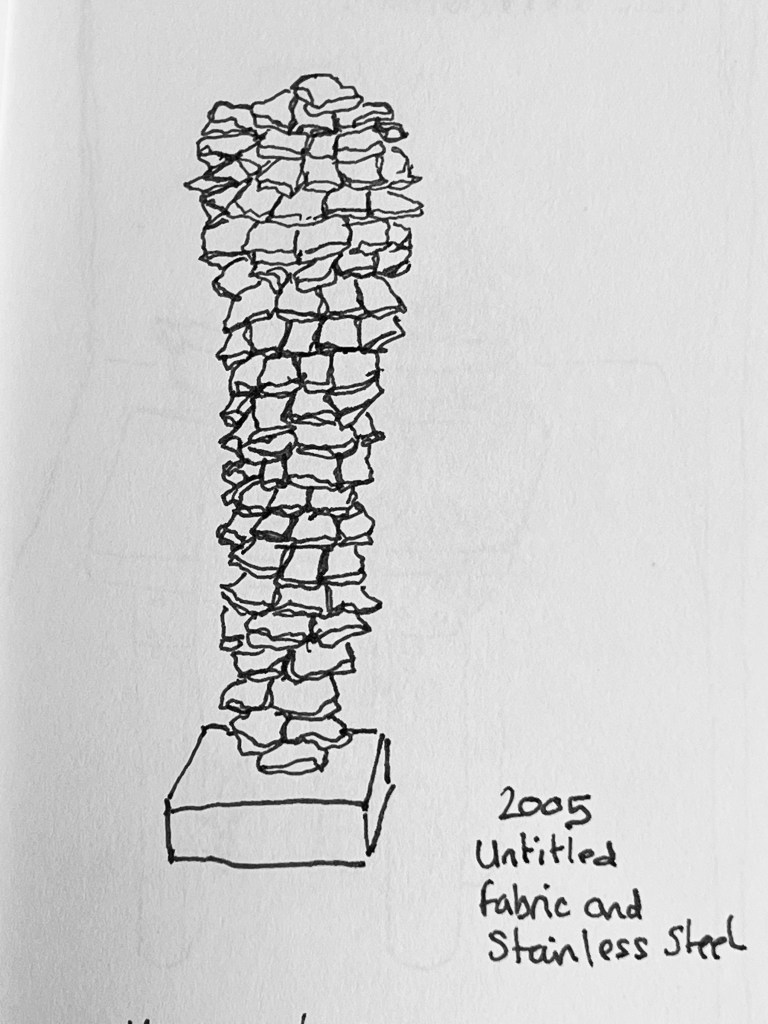 2005
Untitled
fabric and
Stainless Steel